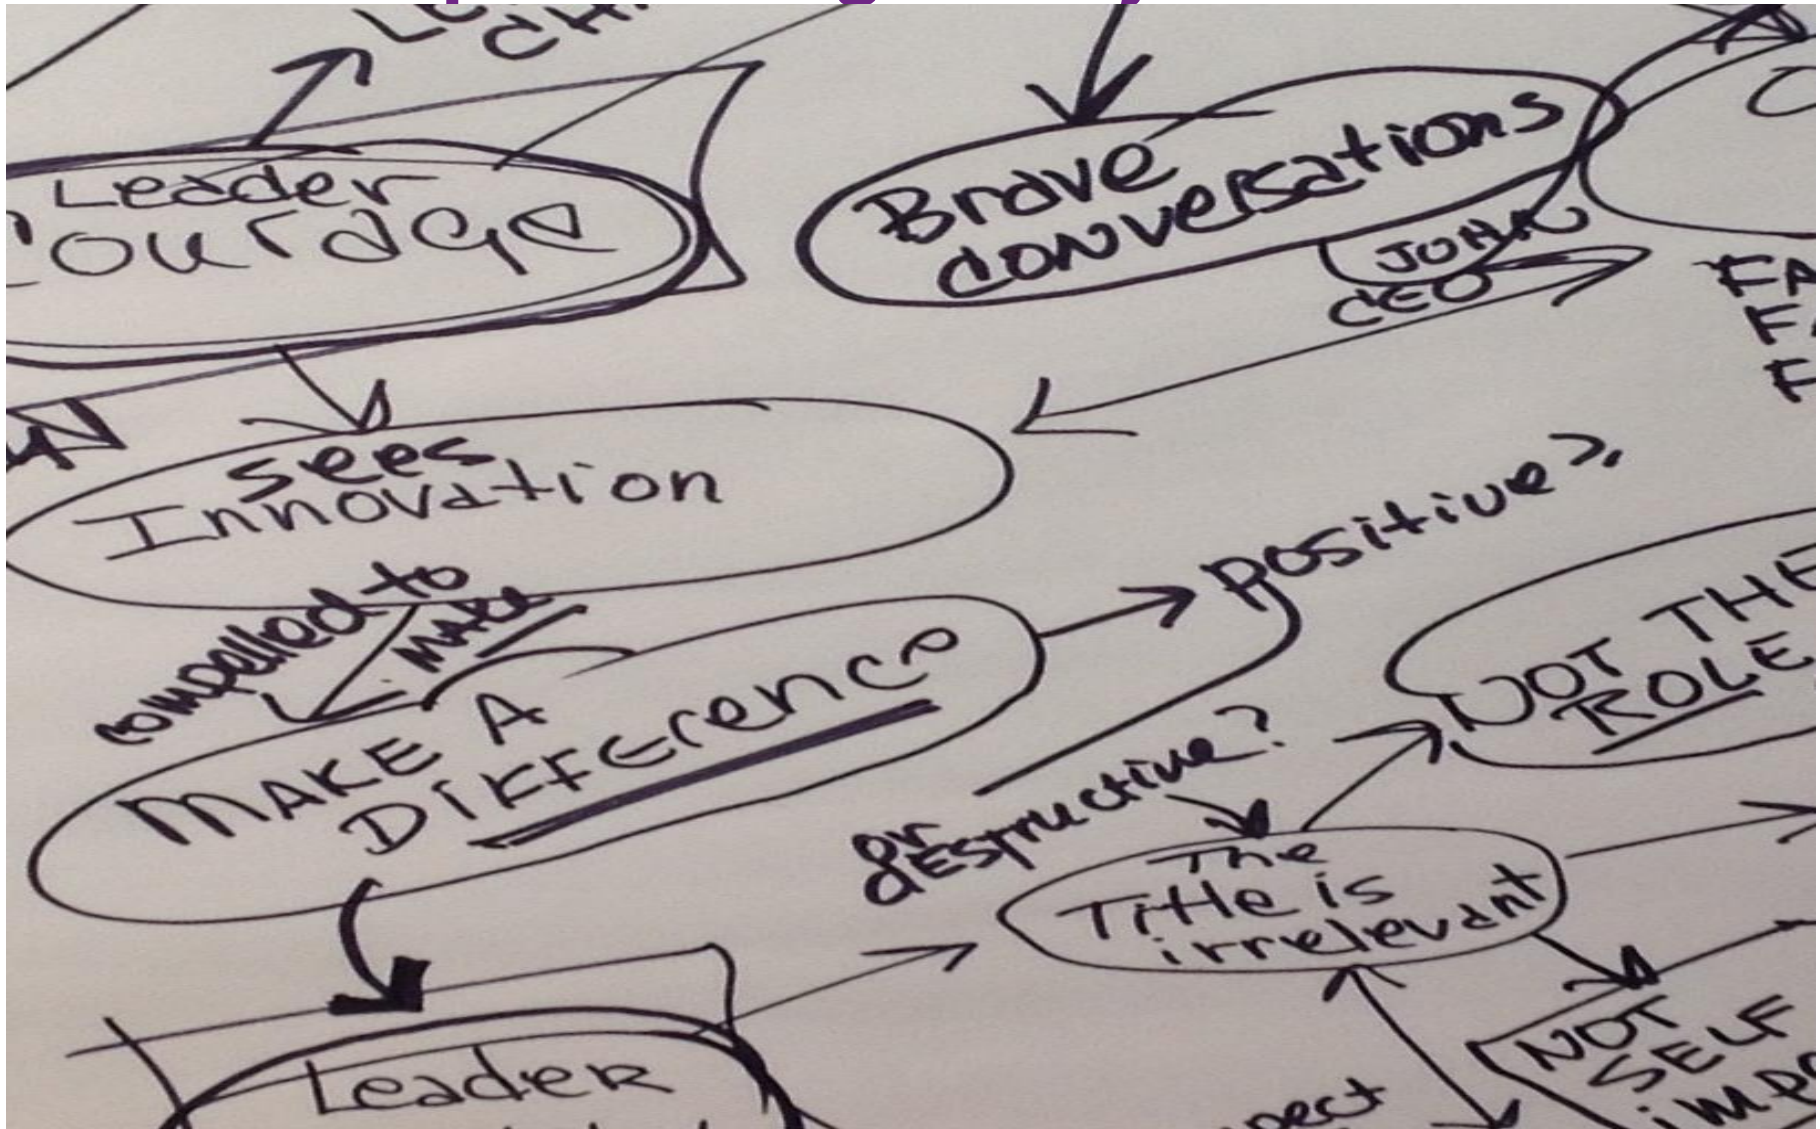 Leader
Courage
Brave
conversations
JOHN
CEO
sees
Innovation
compelled to
MAKE
MAKE A
DIFFErence
positive?
or
dESTructive?
NOT THE
ROLE
The
Title is
irrelevant
NOT
SELF
Leader